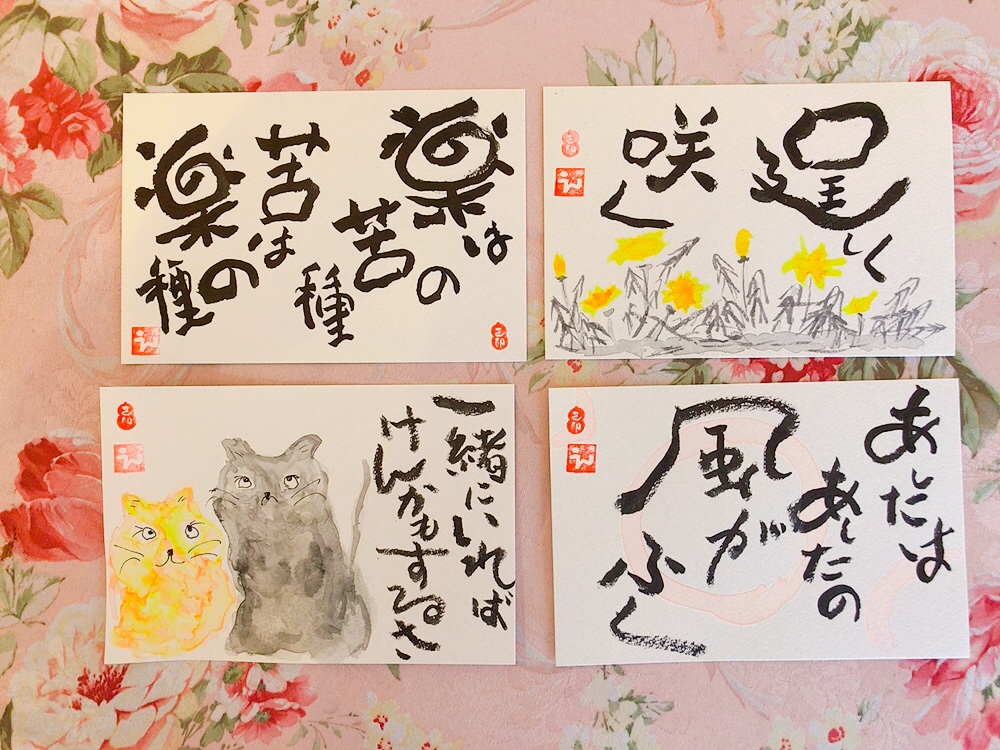 楽は
苦の
種
苦は
楽の
種
逞しく
咲く
一緒にいれば
けんかもするさ
あしたは
あしたの
風が
ふく